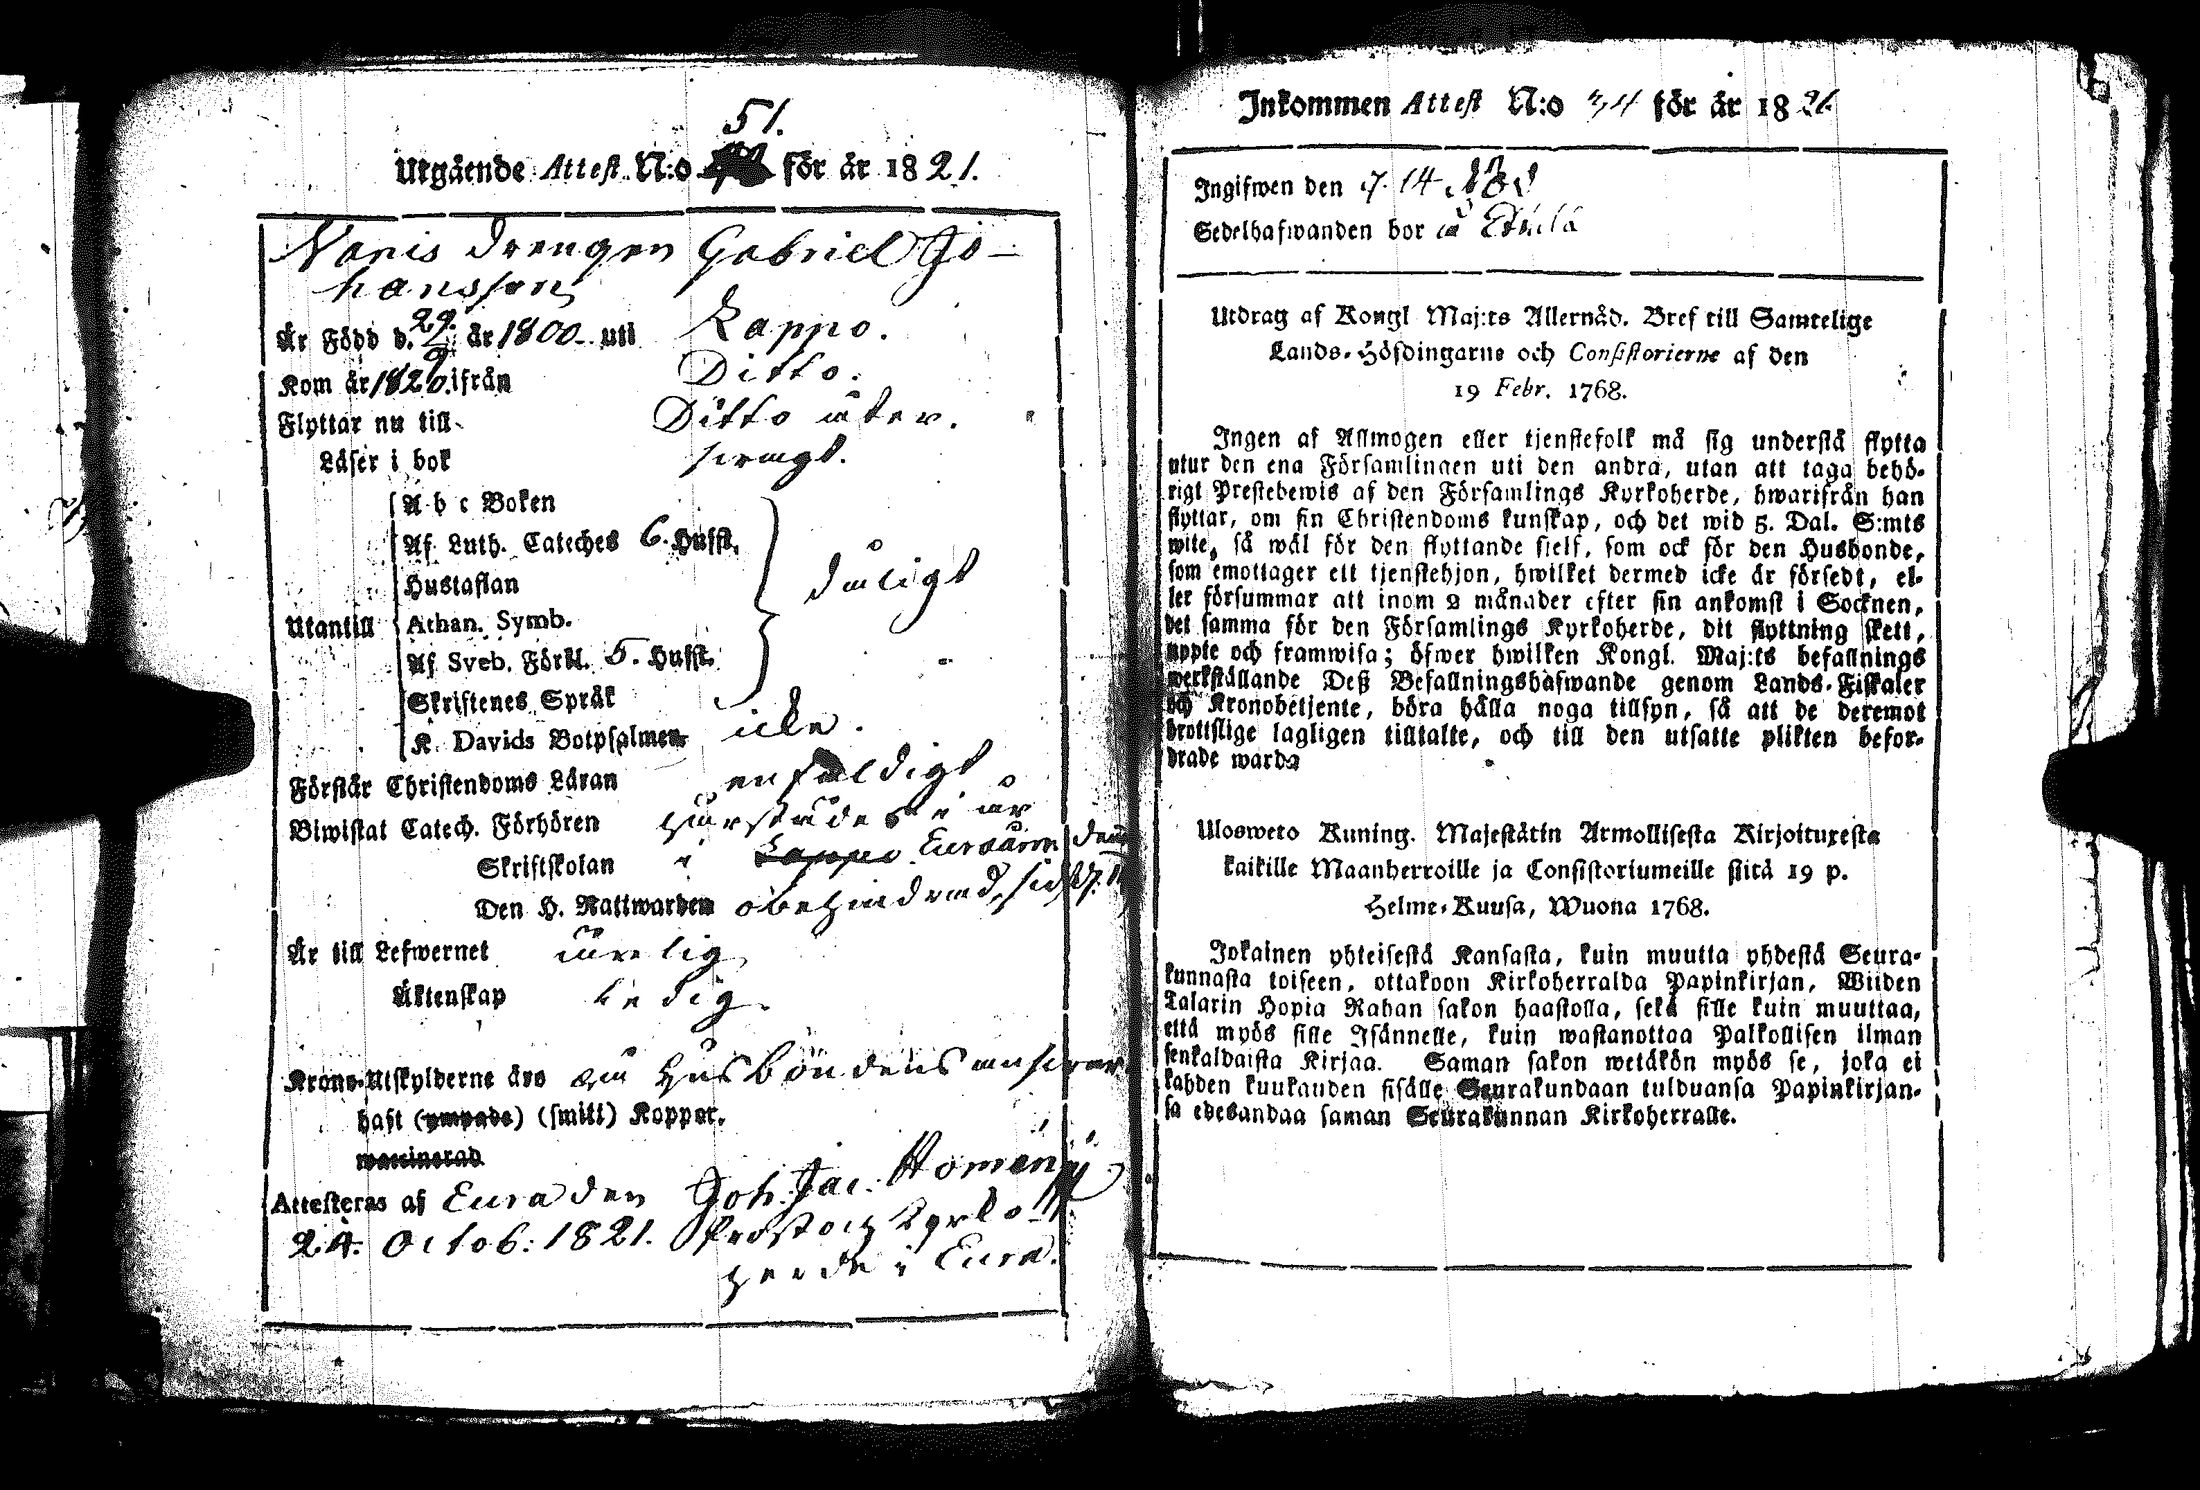 51.
Utgående Attest N:o för år 1821.
Nanis drengen Gabriel Jo-
hansson
Är Född d. 29/9 år 1800 uti Lappo.
Kom år 1820 ifrån Ditto.
Flyttar nu till Ditto åter.
Läser i bok swagt.
A b c Boken
Af Luth. Cateches 6. Hufst.
Hustaflan
dåligt
Utantill Athan. Symb.
Af Sveb. Förkl. 5. Hufst.
Skriftenes Språk
K. Davids Botpsalmer icke.
Förstår Christendoms Läran enfaldigt
Biwistat Catech. Förhören härstädes i år
Skriftskolan i Lappo Eura
Den H. Nattwarden obehindrad, sidst d.
Är till Lefwernet ärlig
Äktenskap ledig.
Krono-Utskylderne äro på Husbondens answar
haft (ympade) (smitt) Koppor.
waccinerad
Attesteras af Eura den Joh. Jac. Homén
24. Octob: 1821. Prost och Kyrko-
herde i Eura.
Inkommen Attest N:o 34 för år 1821.
Ingifwen den 14 Nov
Sedelhafwanden bor å
Utdrag af Kongl Maj:ts Allernåd. Bref till Samtelige
Lands-Höfdingarne och Consistorierne af den
19 Febr. 1768.
Ingen af Allmogen eller tjenstefolk må sig understå flytta
utur den ena Församlingen uti den andra, utan att taga behö-
rigt Prestebewis af den Församlings Kyrkoherde, hwarifrån han
flyttar, om sin Christendoms kunskap, och det wid 5. Dal. S:mts
wite, så wäl för den flyttande sielf, som ock för den Husbonde,
som emottager ett tjenstehjon, hwilket dermed icke är försedt, el-
ler försummar att inom 2 månader efter sin ankomst i Socknen,
det samma för den Församlings Kyrkoherde, dit flyttning skett,
uppte och framwisa; öfwer hwilken Kongl. Maj:ts befallnings
werkställande Deß Befallningshafwande genom Lands-Fiskaler
och Kronobetjente, böra hålla noga tillsyn, så att de deremot
brottslige lagligen tilltalte, och till den utsatte plikten befor-
drade warda
Ulosweto Kuning. Majestätin Armollisesta Kirjoituxesta
kaikille Maanherroille ja Consistoriumeille siitä 19 p.
Helme-Kuusa, Wuona 1768.
Jokainen yhteisestä Kansasta, kuin muutta yhdestä Seura-
kunnasta toiseen, ottakoon Kirkoherralda Papinkirjan, Wiiden
Talarin Hopia Rahan sakon haastolla, sekä sille kuin muuttaa,
että myös sille Isännelle, kuin wastanottaa Palkollisen ilman
senkaldaista Kirjaa. Saman sakon wetäkön myös se, joka ei
kahden kuukauden sisälle Seurakundaan tulduansa Papinkirjan-
sa edesandaa saman Seurakunnan Kirkoherralle.